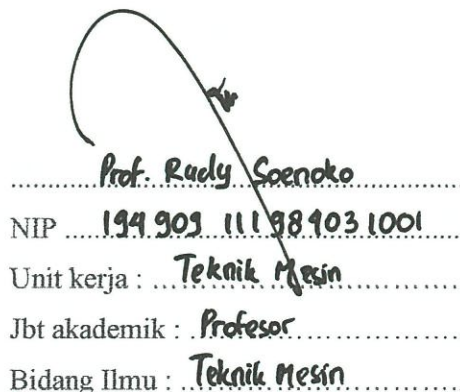 Prof. Rudy Soenoko
NIP 194909 111984031001
Unit kerja : Teknik Mesin
Jbt akademik : Profesor
Bidang Ilmu : Teknik Mesin